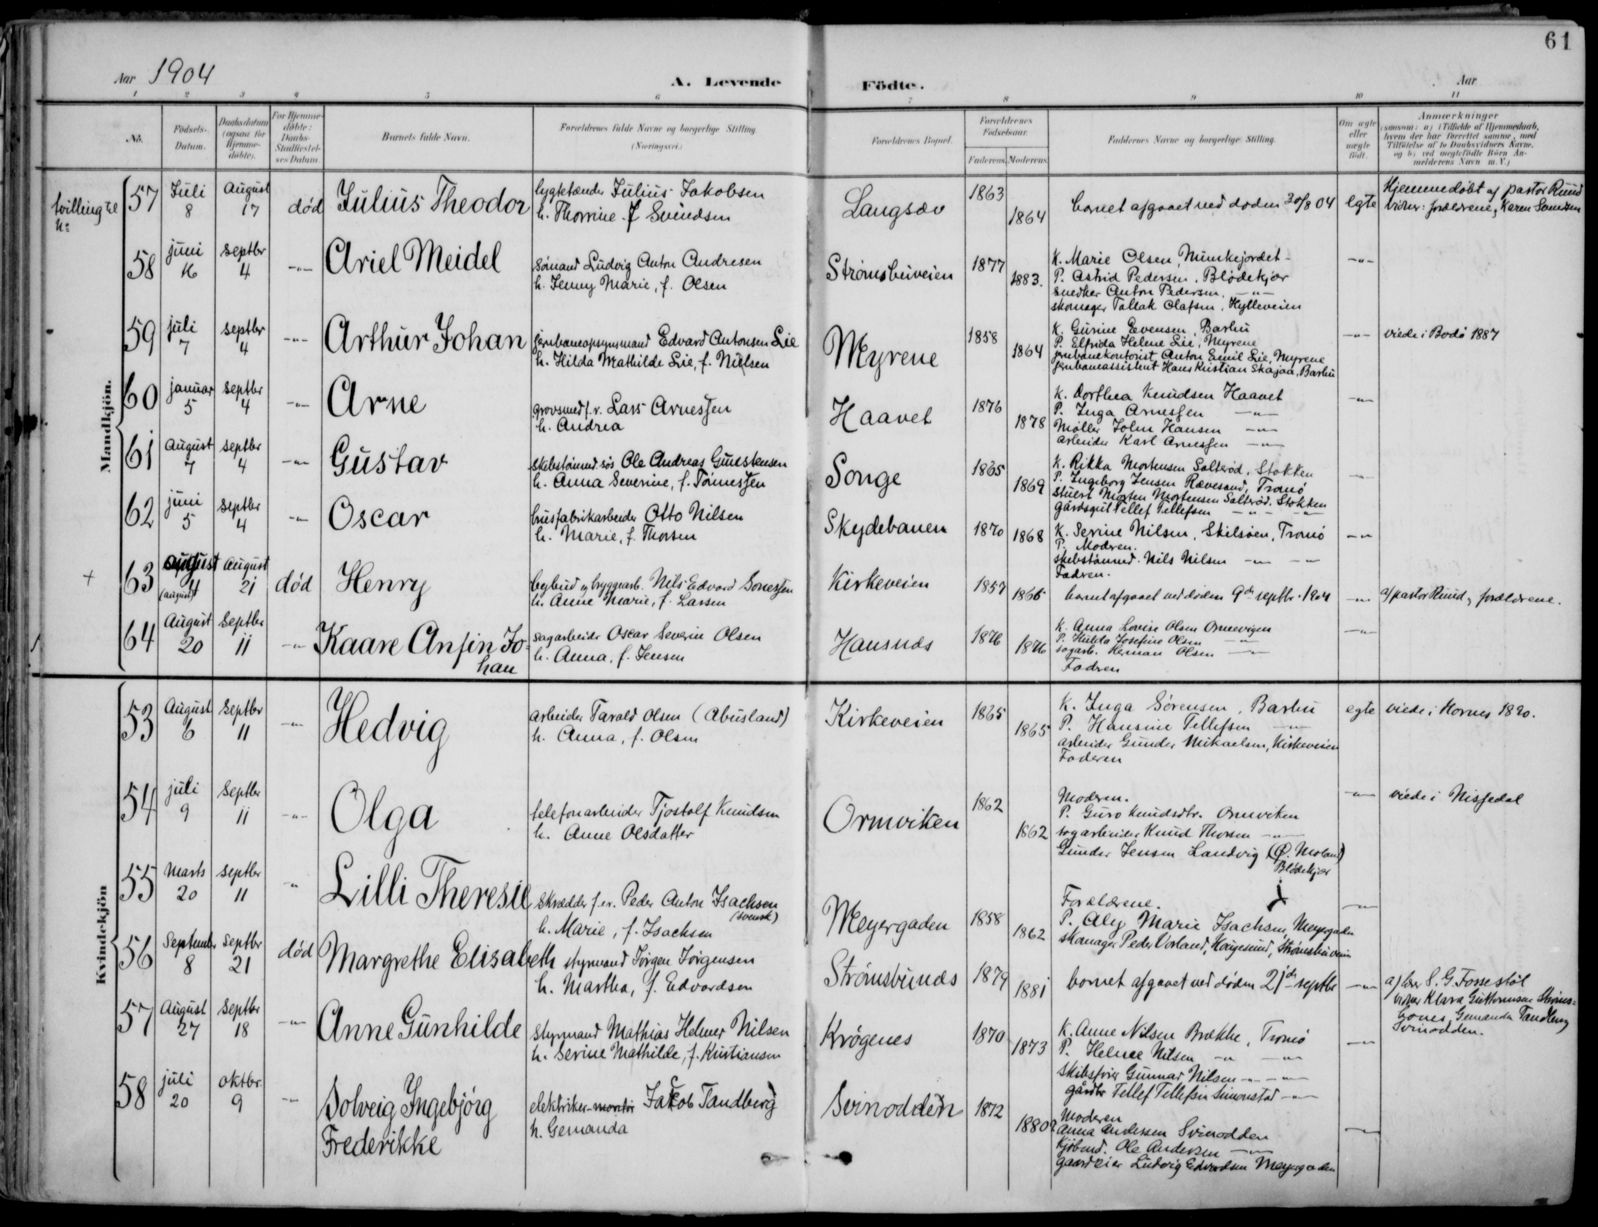 61
Aar 1904
A. Levende
Fødte.
Aar
1 2 3 4 5 6 7 8 9 10 11
No.
Fødsels-Datum.
Daabsdatum (ogsaa for Hjemmedøbte).
For Hjemmedøbte: Daabs-Stadfæstelses Datum.
Barnets fulde Navn.
Forældrenes fulde Navne og borgerlige Stilling (Næringsvei.)
Forældrenes Bopæl.
Forældrenes Fødselsaar.
Faderens. Moderens.
Faddernes Navne og borgerlige Stilling.
Om ægte eller uægte født.
Anmærkninger
Mandkjøn.
tvilling til
57 Juli 8 August 17 død Julius Theodor
lygtetænder Julius Jakobsen
h. Thorine f Svendsen
Langsæv 1863 1864
barnet afgaaet ved døden 30/8 04
egte
Hjemmedøbt af pastor Ruud
vidner: forældrene, Karen Svendsen
58 juni 16 septbr 4 -"- Ariel Meidel
sømand Ludvig Anton Andresen
h. Jenny Marie, f. Olsen
Strømsbuveien 1877 1883.
K. Marie Olsen, Munkejordet
P. Astrid Pedersen, Blødekjær
snedker Anton Pedersen -"-
skomager Tallak Olafsen, Hylleveien
-"-
59 juli 7 septbr 4 -"- Arthur Johan
jernbaneopsynsmand Edvard Antonsen Lie
h. Hilda Mathilde Lie, f. Nielsen
Myrene 1858 1864
K. Gurine Evensen, Barbu
P. Elfrida Helene Lie, Myrene
jernbanekontorist Anton Emil Lie, Myrene
jernbaneassistent Hans Kristian Skajaa, Barbu
-"- viede i Bodø 1887
60 januar 5 septbr 4 -"- Arne
grovsmed f.v. Lars Arnessen
h. Andrea
Haavet 1876 1878
K. Dorthea Knudsen Haavet
P. Inga Arnessen -"-
Møller John Hansen -"-
arbeider Karl Arnessen -"-
-"-
61 August 7 septbr 4 -"- Gustav
h. Anna Severine, f. Tønnessen
Songe 1865 1869
K. Rikka Mortensen Salterød, Stokken
P. Ingeborg Jensen Rævesand, Tromø
Stuert Morten Mortensen Salterød. Stokken
gårdsgut Tellef Tellefsen -"- -"-
-"-
62 juni 5 septbr 4 -"- Oscar
brusfabrikarbeider Otto Nilsen
h. Marie, f. Thorsen
Skydebanen 1870 1868
K. Serine Nilsen, Skilsøen, Tromø
P. Modren.
skibstømmd. Nils Nilsen -"- -"-
Fadren.
-"-
+ 63 august 4 (august) August 21 død Henry
bybud og bryggearb. Nils Edvard Sørensen
h. Anne Marie, f. Larsen
Kirkeveien 1857 1866
barnet afgaaet ved døden 9de septbr. 1904
-"- a/ pastor Ruud, forældrene.
64 August 20 Septbr 11 -"- Kaare Anfin Jo-
han
sagarbeider Oscar Severin Olsen
h. Anna, f. Jensen
Hansnæs 1876 1876
K. Anna Lovise Olsen Ormevigen
P. Hulda Josefine Olsen -"-
sagarb. Herman Olsen -"-
Fadren
-"-
Kvindekjøn
53 August 6 Septbr 11 -"- Hedvig
arbeider Tarald Olsen (Abusland)
h. Anna, f. Olsen
Kirkeveien 1865 1865
K. Inga Sørensen, Barbu
P. Hansine Tellefsen -"-
arbeider Gunder Mikaelsen, Kirkeveien
Faderen
egte viede i Hornes 1890.
54 juli 9 Septbr 11 -"- Olga
telefonarbeider Tjostolf Knudsen
h. Anne Olsdatter
Ormviken 1862 1862
Modren.
P. Guro Knudsdtr. Ormviken
sagarbeider Knud Thorsen -"-
Gunder Jensen Landvig (Ø. Moland)
Blødekjær
-"- viede i Nissedal
55 Marts 20 septbr 11 -"- Lilli Theresie
skrædder f.v. Peder Anton Isachsen
(svensk)
h. Marie, f. Isachsen
Meyergaden 1858 1862
Forældrene.
P. Aly Marie Isachsen, Meyergaden
skomager Peder Vorland, Haugesund, Strømsbuveien
-"-
56 September 8 Septbr 21 død Margrethe Elisabeth
styrmand Jørgen Jørgensen
h. Martha, f. Edvardsen
Strømsbunæs 1879 1881
barnet afgaaet ved døden 21de septbr
-"-
vidner Klara Guttormsen Strøms-
bones, Gemanda Tandberg
Svinodden.
57 August 27 Septbr 18 -"- Anne Gunhilde
styrmand Mathias Helmer Nilsen
h. Serine Mathilde, f. Kristiansen
Krøgenes 1870 1873
K. Anne Nilsen Brække, Tromø
P. Helene Nilsen -"- -"-
Skibsfører Gunnar Nilsen -"- -"-
gårdbr Tellef Tellefsen Simonstad -"-
-"-
58 juli 20 oktbr. 9 -"- Solveig Ingebjørg
Frederikke
elektriker montør Jacob Tandberg
h. Gemanda
Svinodden 1872 1880
Moderen
Anna Andersen Svinodden
Kjøbmd. Ole Andersen -"-
gaardeier Ludvig Edvardsen Meyergaden
-"-